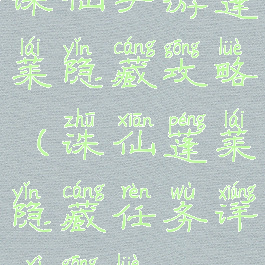 诛仙手游蓬
lái yǐn cáng gōng lüè
莱隐藏攻略
zhū xiān péng lái
(诛仙蓬莱
yǐn cáng rèn wù xiáng
隐藏任务详